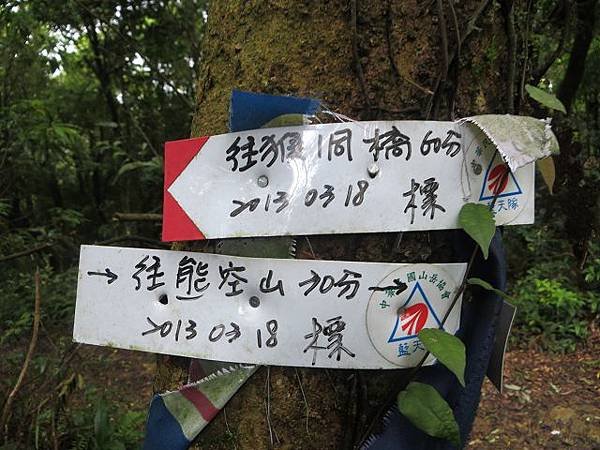 往猴洞橋60分
2013 03 18 標
天隊
→往熊空山30分→
2013 03 18 標
中華 國山岳協會
藍天